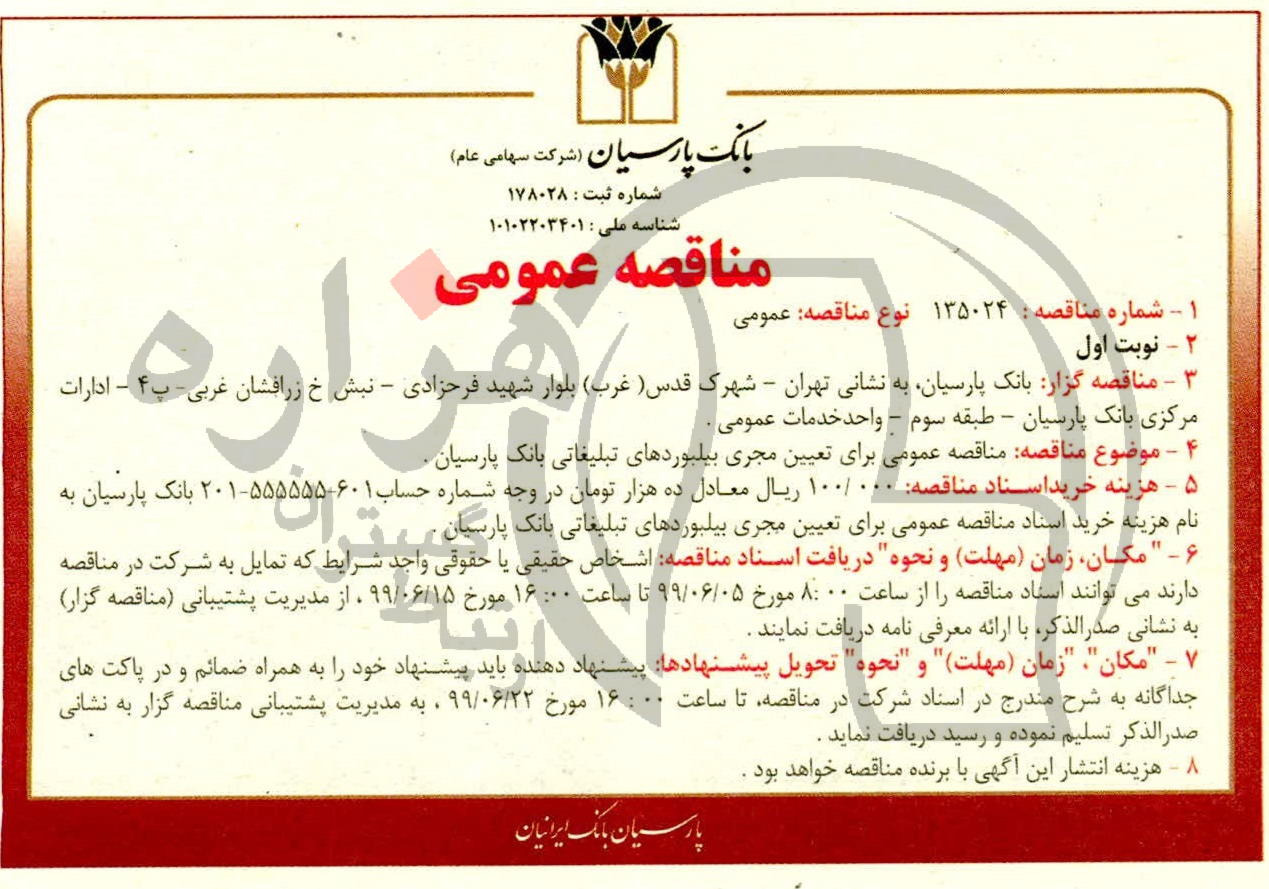 بانک پارسیان (شرکت سهامی عام)
شماره ثبت : ۱۷۸۰۲۸
شناسه ملی : ۱۰۱۰۲۲۰۳۴۰۱
مناقصه عمومی
۱ - شماره مناقصه : ۱۳۵۰۲۴ نوع مناقصه: عمومی
۲ - نوبت اول
۳ - مناقصه گزار: بانک پارسیان، به نشانی تهران - شهرک قدس( غرب) بلوار شهید فرحزادی - نبش خ زرافشان غربی- پ۴ - ادارات
مرکزی بانک پارسیان - طبقه سوم - واحدخدمات عمومی .
۴ - موضوع مناقصه: مناقصه عمومی برای تعیین مجری بیلبوردهای تبلیغاتی بانک پارسیان .
۵ - هزینه خریداسـناد مناقصه: ۱۰۰/۰۰۰ ریـال معـادل ده هزار تومان در وجه شـماره حساب۶۰۱-۵۵۵۵۵۵-۲۰۱ بانک پارسیان به
نام هزینه خرید اسناد مناقصه عمومی برای تعیین مجری بیلبوردهای تبلیغاتی بانک پارسیان .
۶ - " مکـان، زمان (مهلت) و نحوه" دریافت اسـناد مناقصه: اشـخاص حقیقی یا حقوقی واجد شـرایط که تمایل به شـرکت در مناقصه
دارند می توانند اسناد مناقصه را از ساعت ۰۰ :۸ مورخ ۹۹/۰۶/۰۵ تا ساعت ۰۰: ۱۶ مورخ ۹۹/۰۶/۱۵ ، از مدیریت پشتیبانی (مناقصه گزار)
به نشانی صدرالذکر، با ارائه معرفی نامه دریافت نمایند .
۷ - "مکان"، "زمان (مهلت)" و "نحوه" تحویل پیشـنهادها: پیشـنهاد دهنده باید پیشـنهاد خود را به همراه ضمائم و در پاکت های
جداگانه به شرح مندرج در اسناد شرکت در مناقصه، تا ساعت ۰۰ : ۱۶ مورخ ۹۹/۰۶/۲۲ ، به مدیریت پشتیبانی مناقصه گزار به نشانی
صدرالذکر تسلیم نموده و رسید دریافت نماید .
۸ - هزینه انتشار این آگهی با برنده مناقصه خواهد بود .
پارسیان بانک ایرانیان
هزاره
گستران
ارتباط